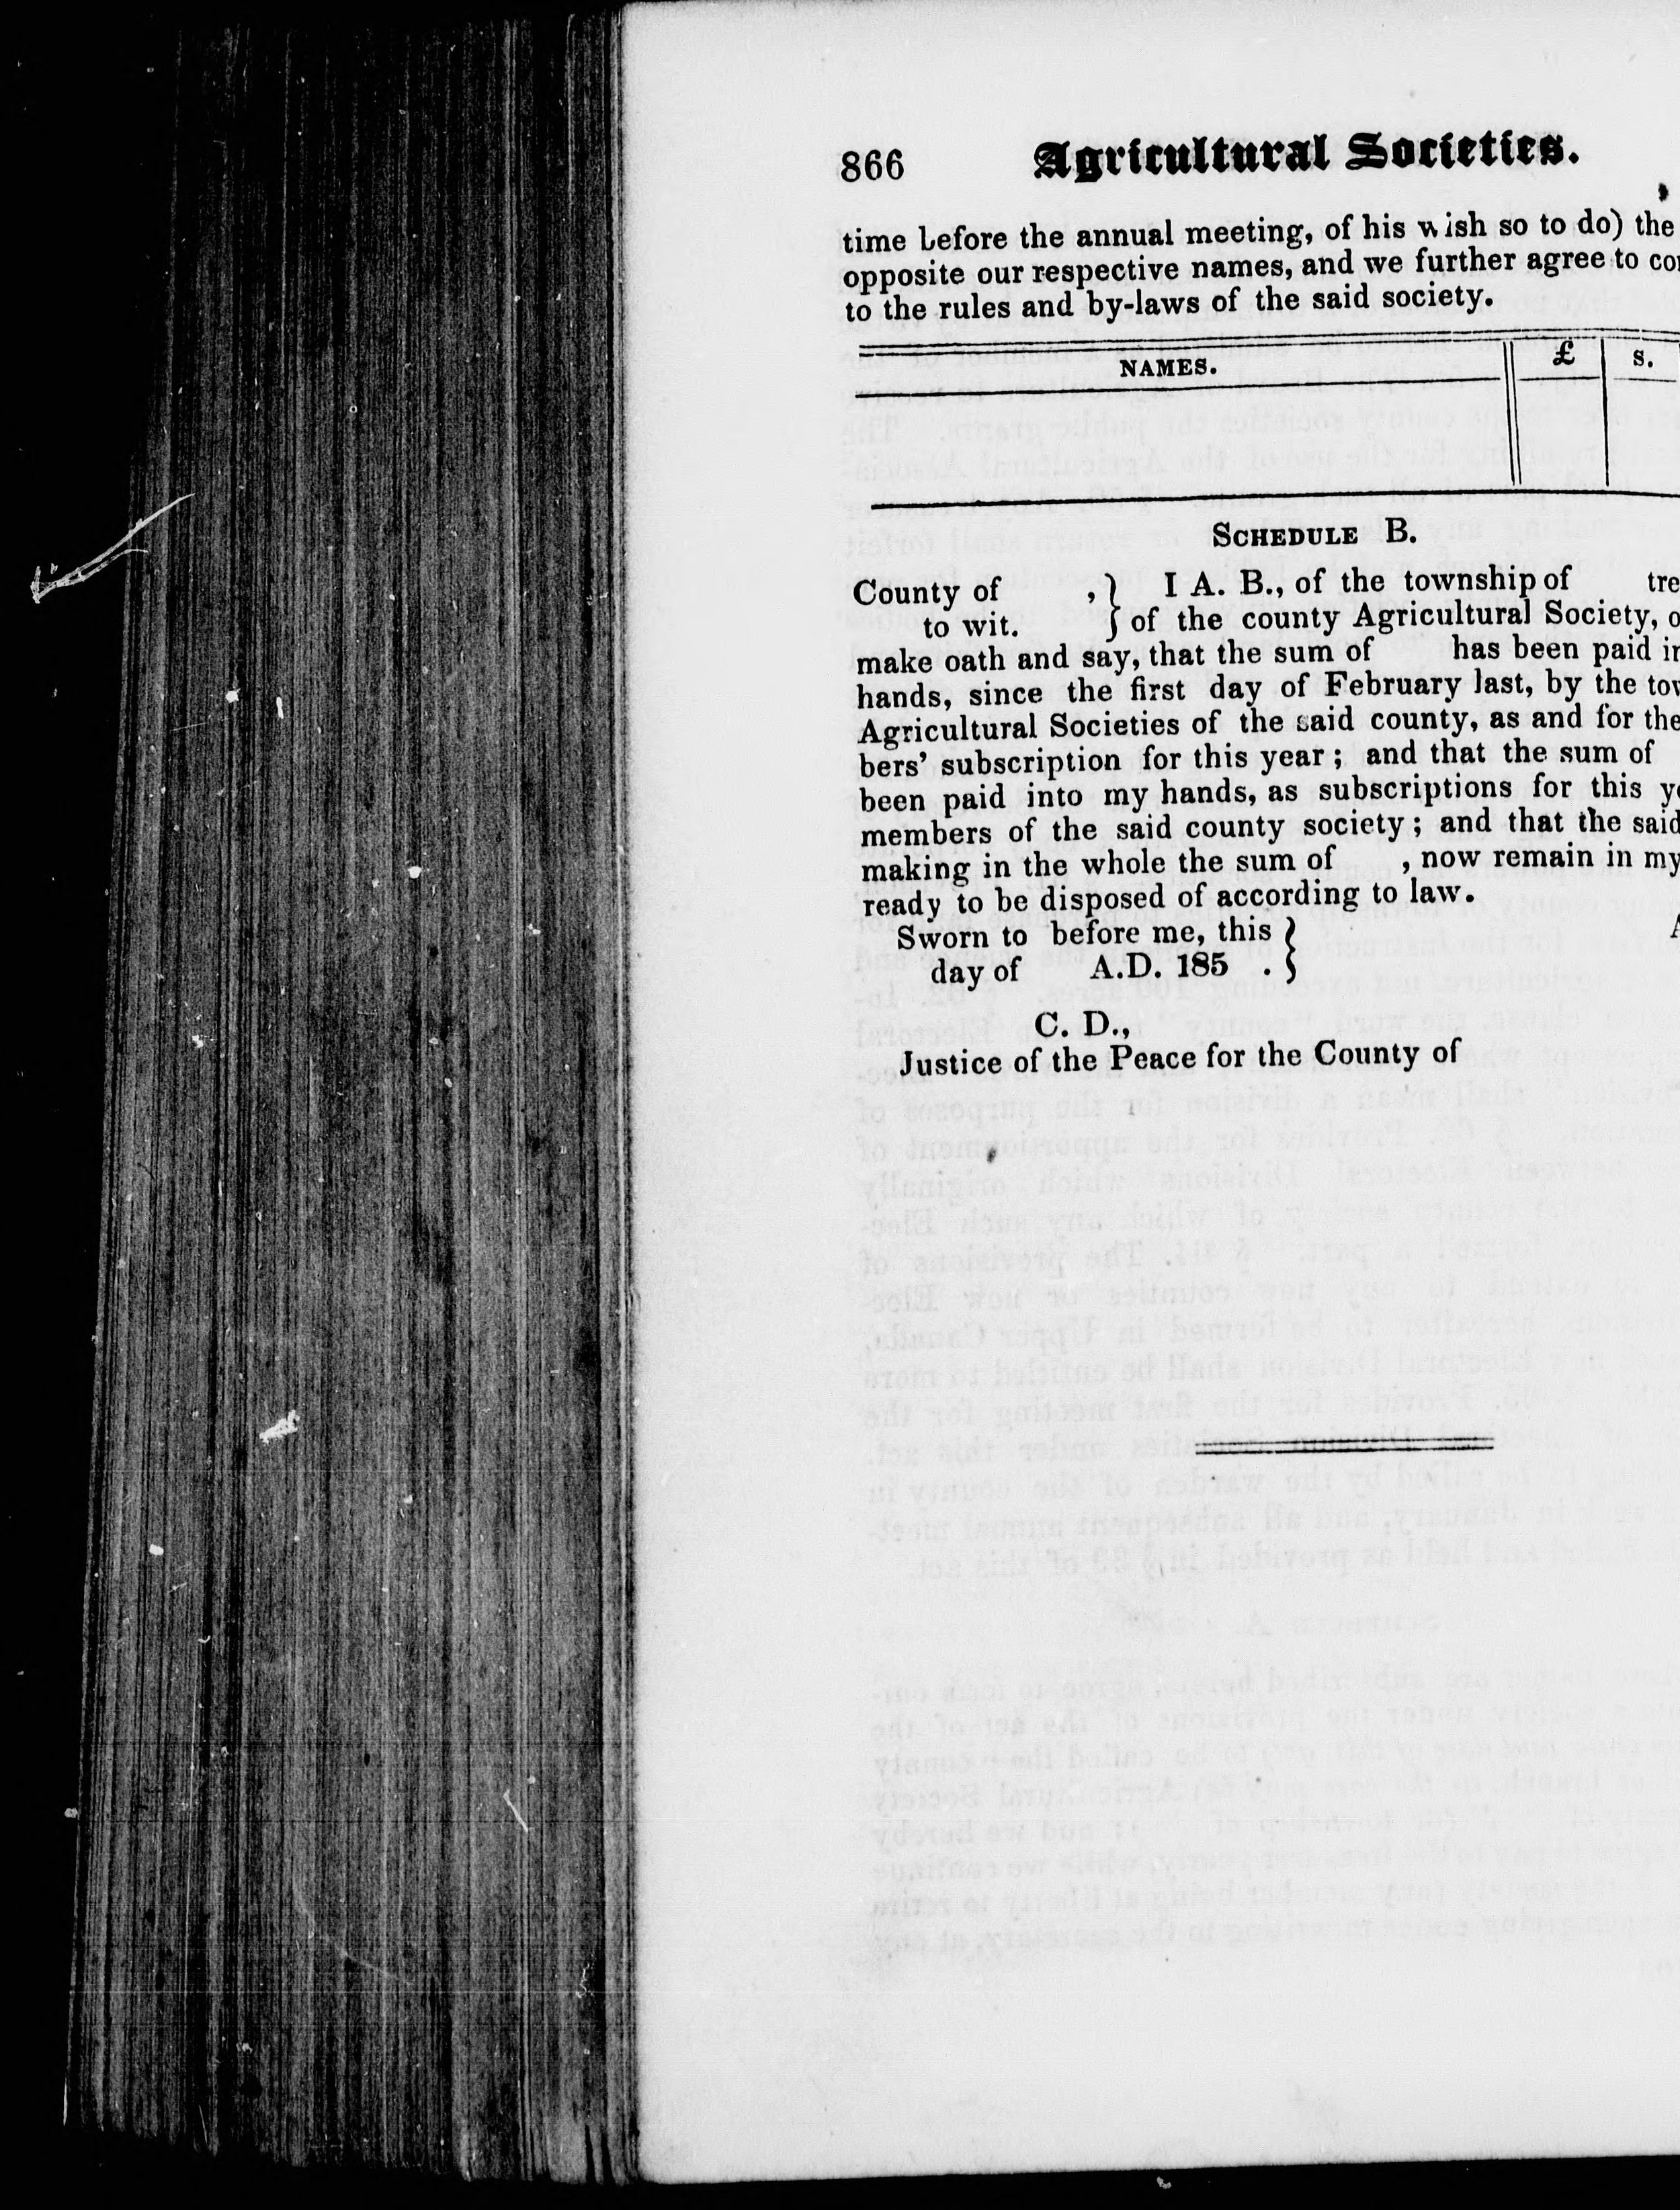 866 Agricultural Societies.
time before the annual meeting, of his wish so to do) the
opposite our respective names, and we further agree to
to the rules and by-laws of the said society.
NAMES. £ S.
SCHEDULE B.
County of , } I A. B., of the township of
to wit. } of the county Agricultural Society,
make oath and say, that the sum of has been paid
hands, since the first day of February last, by the
Agricultural Societies of the said county, as and for the
bers' subscription for this year; and that the sum of
been paid into my hands, as subscriptions for this
members of the said county society; and that the said
making in the whole the sum of , now remain in my
ready to be disposed of according to law.
Sworn to before me, this }
day of A.D. 185 . }
C. D.,
Justice of the Peace for the County of